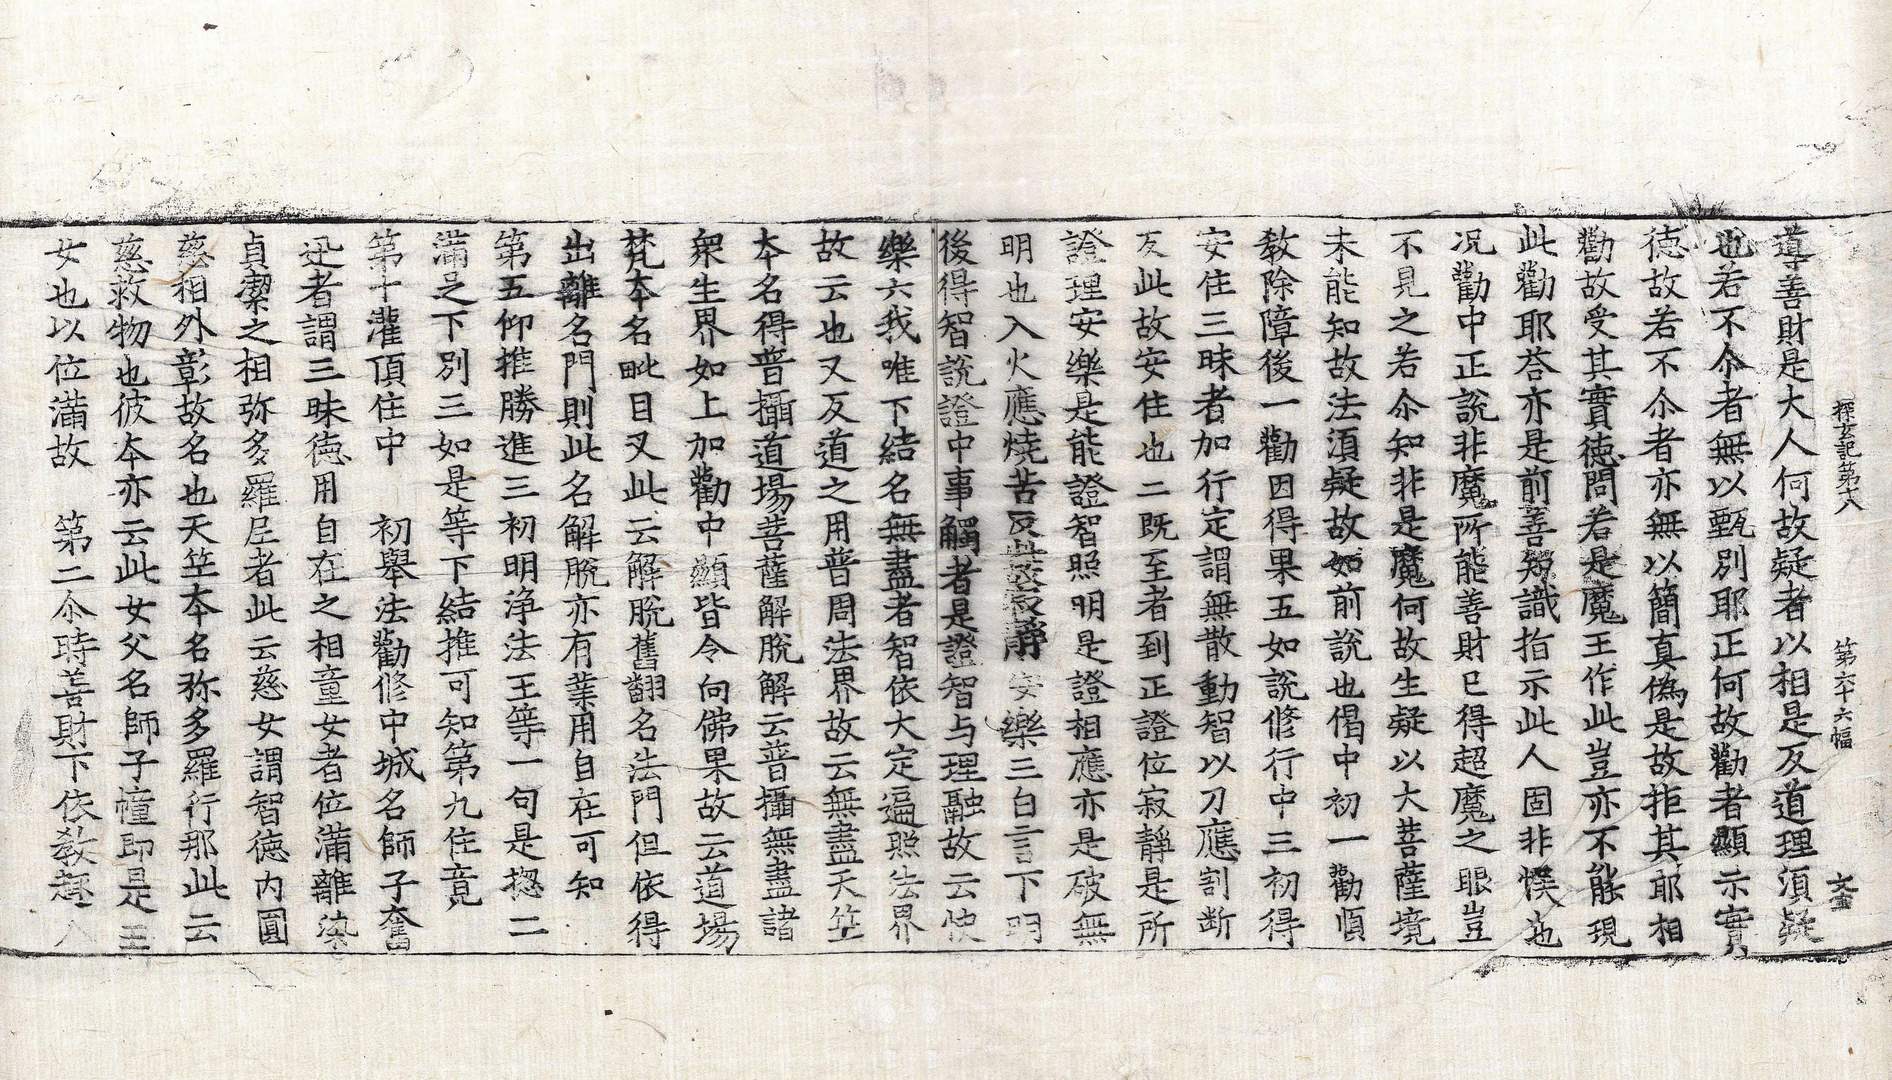 探玄記第十八 第六十六幅 文
導善財是大人何故疑者以相是反道理湏疑
也若不尒者無以甄別耶正何故勸者顯示實
德故若不尒者亦無以簡真偽是故拒其耶相
勸故受其實德問若是魔王作此豈亦不能現
此勸耶荅亦是前善知識指示此人固非悮也
况勸中正說非魔所能善財已得超魔之眼豈
不見之若尒知非是魔何故生疑以大菩薩境
未能知故法湏疑故如前說也偈中初一勸順
教除障後一勸因得果五如說修行中三初得
安住三昧者加行定謂無散動智以刀應割断
反此故安住也二既至者到正證位寂靜是所
證理安樂是能證智照明是證相應亦是破無
明也入火應燒苦反此故寂靜安樂三白言下明
後得智說證中事觸者是證智与理融故云快
樂六我唯下結名無盡者智依大定遍照法界
故云也又反道之用普周法界故云無盡天笁
本名得普攝道場菩薩解脫解云普攝無盡諸
衆生界如上加勸中顯皆令向佛果故云道塲
梵本名毗目叉此云解脫舊翻名法門但依得
出離名門則此名解脫亦有業用自在可知
第五仰推勝進三初明浄法王等一句是揔二
滿足下別三如是等下結推可知第九住竟
第十灌頂住中 初舉法勸修中城名師子奮
迅者謂三昧德用自在之相童女者位滿離染
貞潔之相弥多羅尼者此云慈女謂智德内圓
慈相外彰故名也天笁本名弥多羅行那此云
慈救物也彼本亦云此女父名師子幢即是王
女也以位滿故 第二尒時善財下依教趣入